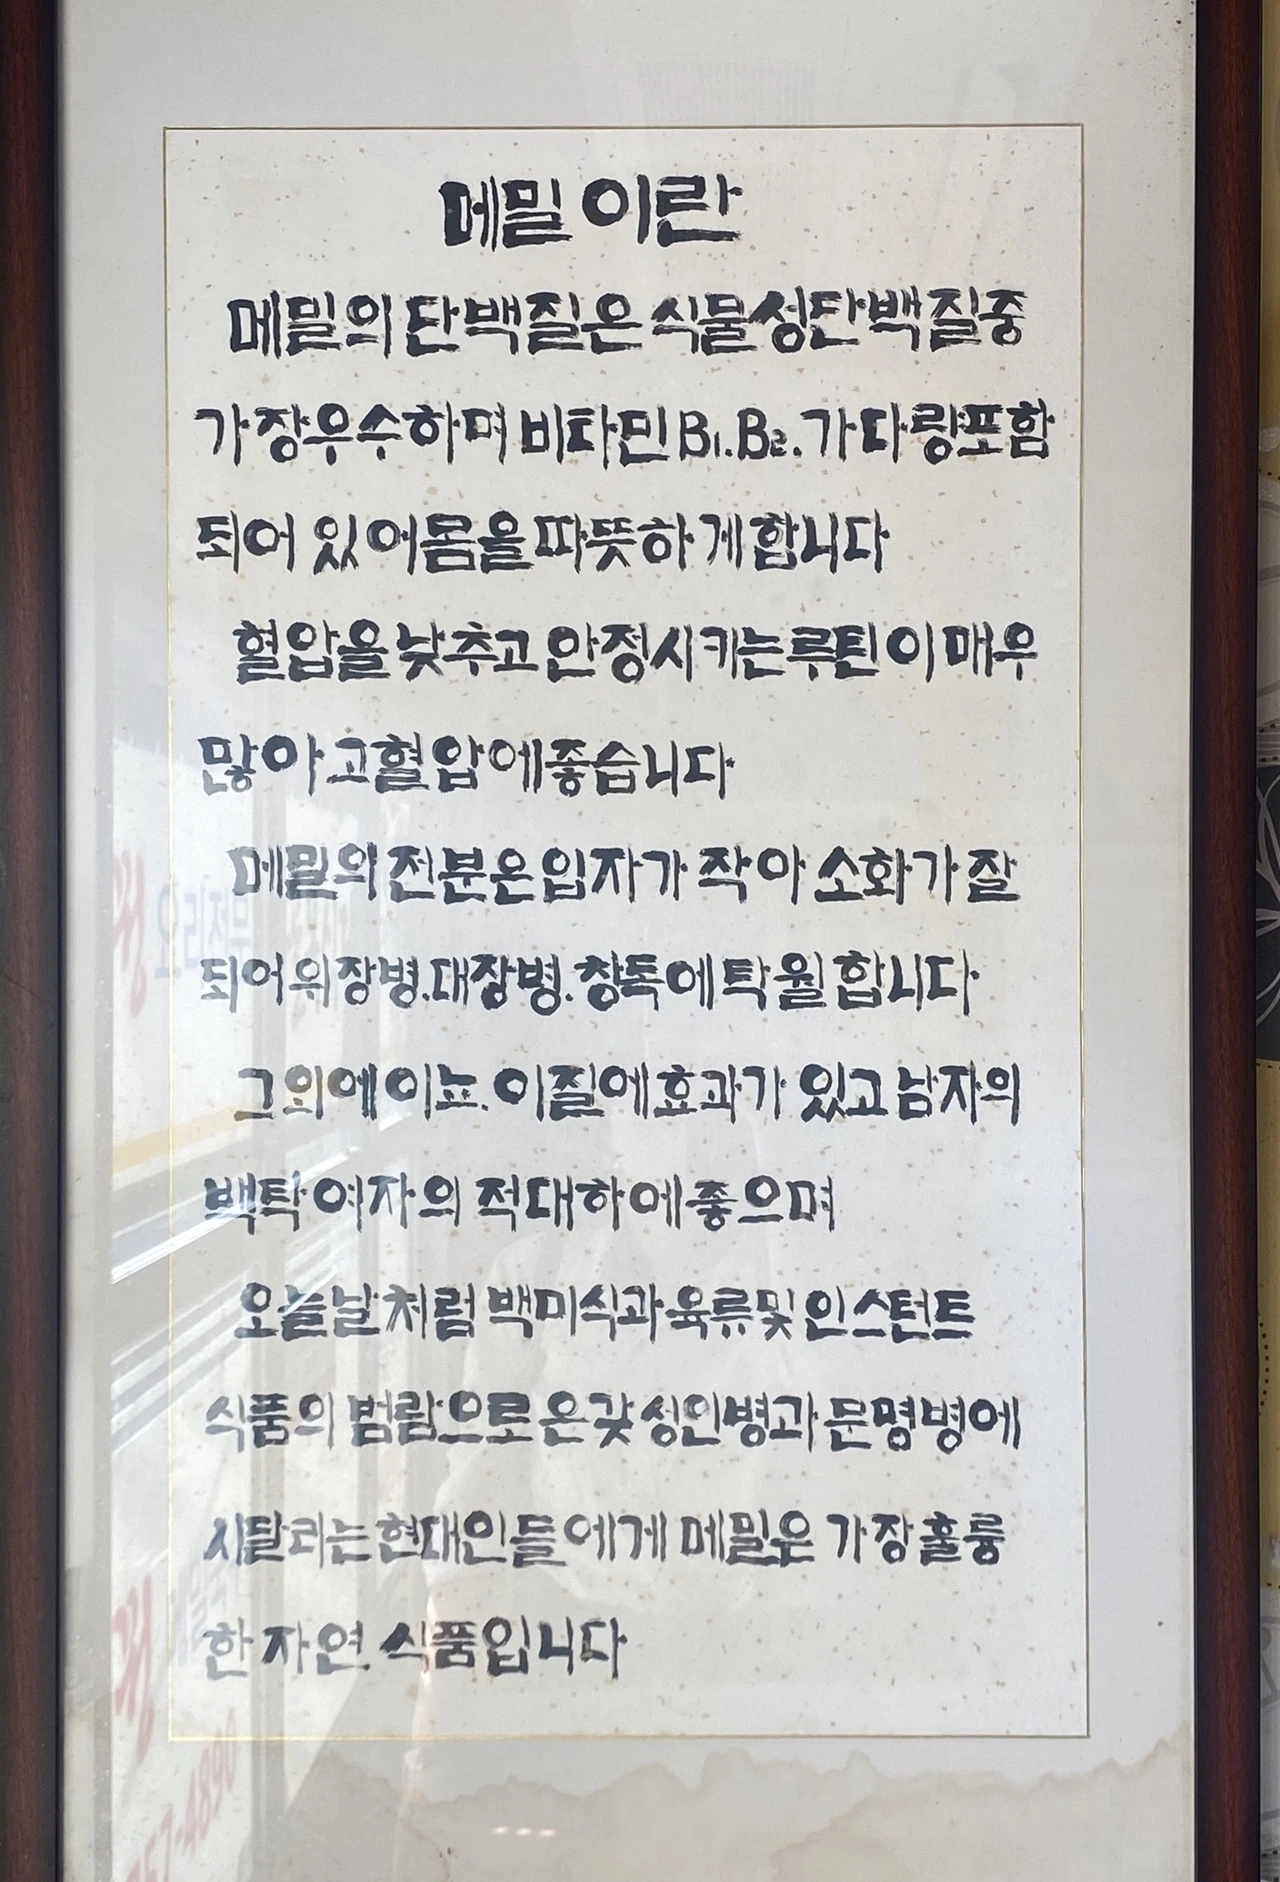 메밀이란
메밀의 단백질은 식물성단백질중
가장우수하며 비타민 B1.B2.가 다량포함
되어 있어 몸을 따뜻하게합니다
혈압을 낮추고 안정시키는 루틴이 매우
많아 고혈압에 좋습니다
메밀의 전분은 입자가 작아 소화가 잘
되어 위장병.대장병.창독에 탁월합니다
그외에 이뇨.이질에 효과가 있고 남자의
백탁 여자의 적대하에 좋으며
오늘날처럼 백미식과 육류및 인스턴트
식품의 범람으로 온갖 성인병과 문명병에
시달리는 현대인들에게 메밀은 가장 훌륭
한 자연 식품입니다